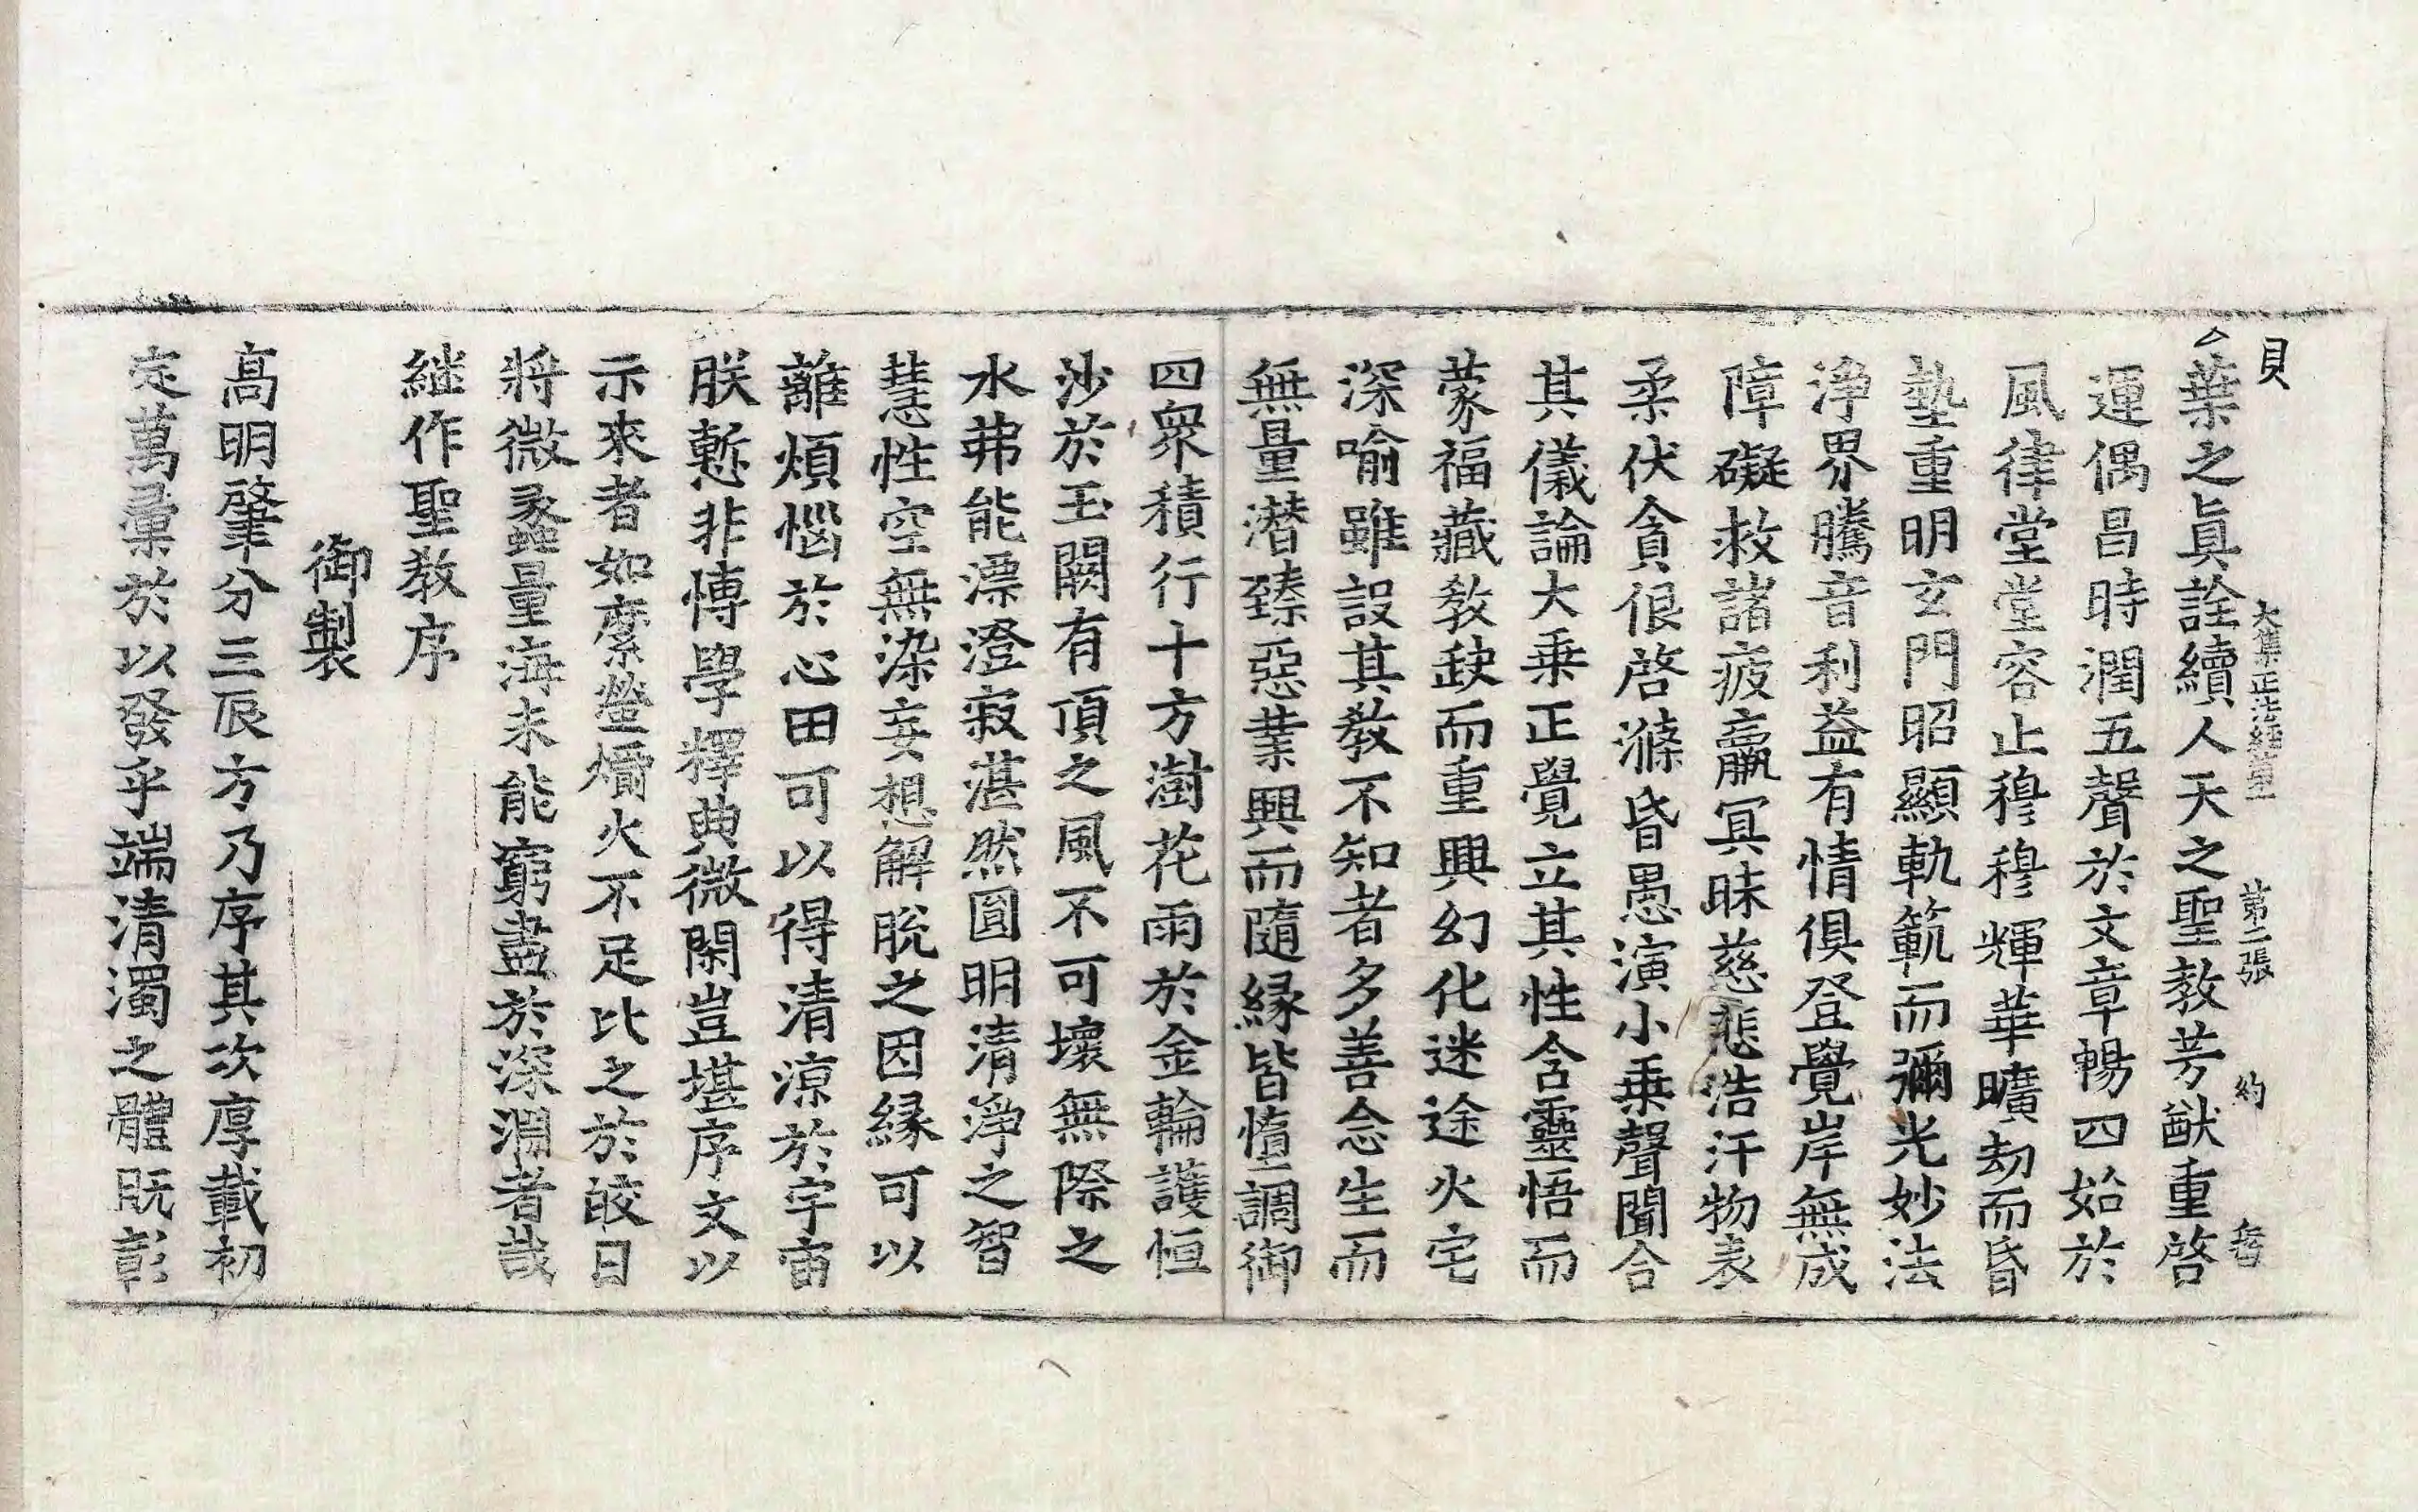 貝
大集正法經卷一 第二張 約
葉之眞詮續人天之聖敎芳猷重啓
運偶昌時潤五聲於文章暢四始於
風律堂堂容止穆穆輝華曠劫而昏
墊重明玄門昭顯軌範而彌光妙法
淨界騰音利益有情俱登覺岸無成
障礙救諸疲羸冥昧慈悲浩汗物表
柔伏貪佷啓滌昏愚演小乗聲聞合
其儀論大乗正覺立其性含靈悟而
蒙福藏敎缺而重興幻化迷途火宅
深喻雖設其敎不知者多善念生而
無量潛臻惡業興而隨縁皆墮調御
四衆積行十方澍花雨於金輪護恒
沙於玉闕有頂之風不可壞無際之
水弗能漂澄寂湛然圓明清淨之智
慧性空無染妄想解脫之因縁可以
離煩惱於心田可以得清涼於宇宙
朕慙非博學釋典微閑豈堪序文以
示來者如縻螢爝火不足比之於皎日
將微蠡量海未能窮盡於深淵者哉
継作聖敎序
御製
髙明肇分三辰方乃序其次厚載初
定萬彙於以發乎端清濁之體旣彰